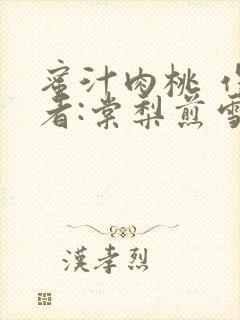 蜜汁肉桃
者:棠梨煎雪
漢孝烈